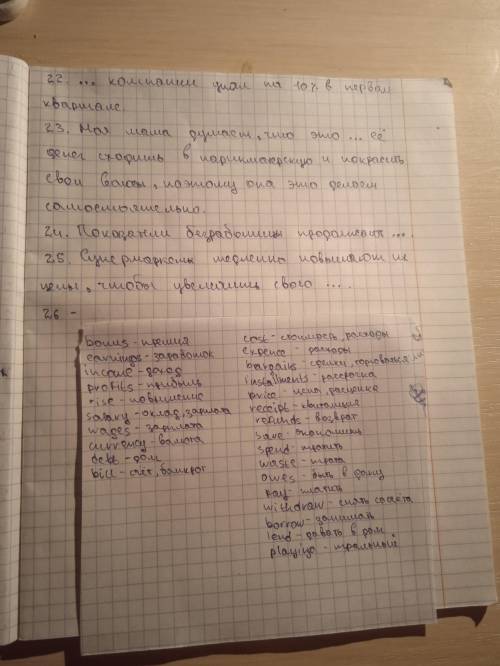 22. ... компании упал на 10% в первом
квартале.
23. Моя мама думает, что это ... её
денег сходить в парикмахерскую и покрасить
свои волосы, поэтому она это делает
самостоятельно.
24. Показатели безработицы продолжают ....
25. Супермаркеты медленно повышают их
цены, чтобы увеличить свого ....
26 -
bonus - премия
earnings - заработок
income - доход
profits - прибыль
rise - повышение
salary - оклад, зарплата
wages - зарплата
currency - валюта
debt - долг
bill - счёт, банкрот
cost - стоимость, расходы
expence - расходы
bargains - сделки, торговаться
installments - рассрочка
price - цена, расценка
receipt - квитанция
refunds - возврат
save - экономить
spend - тратить
waste - трата
owes - быть в долгу
pay - платить
withdraw - снять со счёта
borrow - занимать
lend - давать в долг